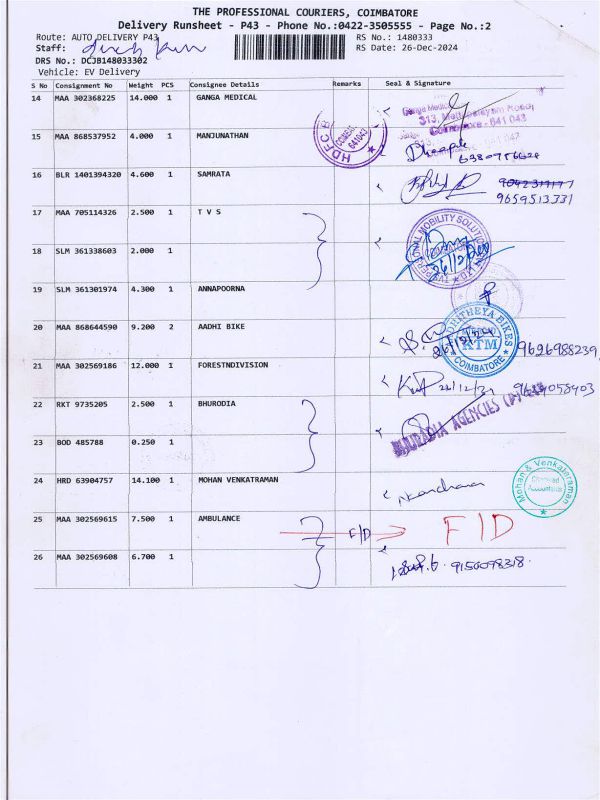 THE PROFESSIONAL COURIERS, COIMBATORE
Delivery Runsheet - P43 - Phone No.:0422-3505555 - Page No.:2
Route: AUTO DELIVERY P43
RS No.: 1480333
Staff:
RS Date: 26-Dec-2024
DRS No.: DCJB148033302
Vehicle: EV Delivery
S No Consignment No Weight PCS Consignee Details Remarks Seal & Signature
14 MAA 302368225 14.000 1 GANGA MEDICAL
15 MAA 868537952 4.000 1 MANJUNATHAN
HDFC B
641043
16 BLR 1401394320 4.600 1 SAMRATA
9659513331
17 MAA 705114326 2.500 1 T V S
18 SLM 361338603 2.000 1
19 SLM 361301974 4.300 1 ANNAPOORNA
20 MAA 868644590 9.200 2 AADHI BIKE
KTM
COIMBATORE
9626988239
21 MAA 302569186 12.000 1 FORESTNDIVISION
22 RKT 9735205 2.500 1 BHURODIA
AGENCIES
23 BOD 485788 0.250 1
24 HRD 63904757 14.100 1 MOHAN VENKATRAMAN
Mohan & Venkataraman
Chartered
Accountants
25 MAA 302569615 7.500 1 AMBULANCE F/D F/D
26 MAA 302569608 6.700 1